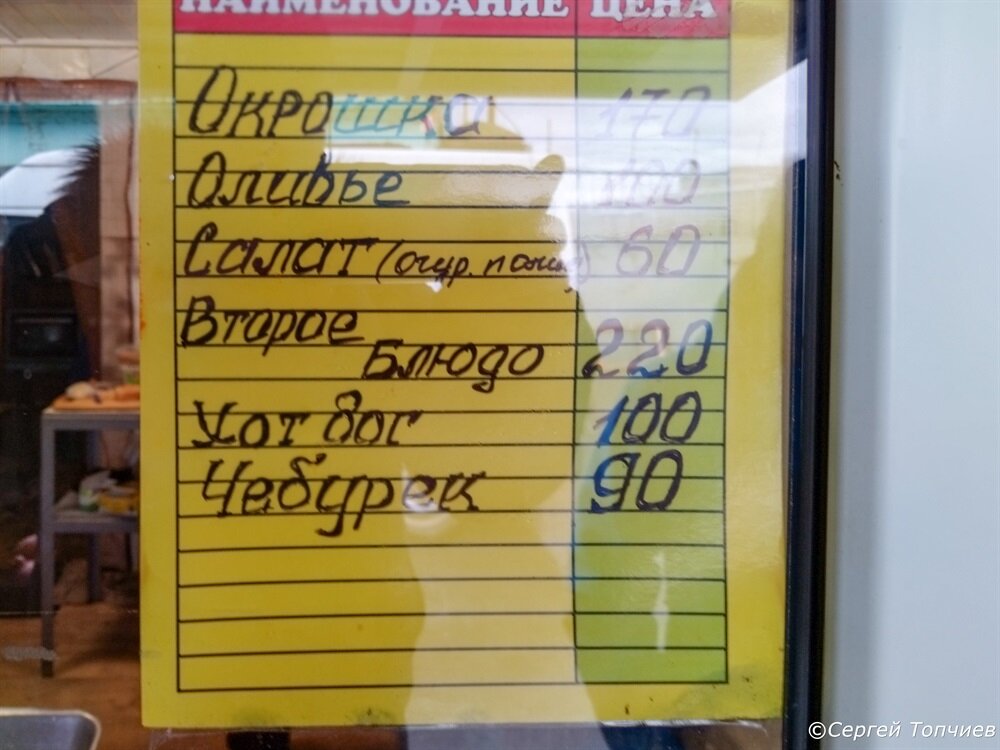 НАИМЕНОВАНИЕ ЦЕНА
Окрошка 170
Оливье 100
Салат (огур. помид) 60
Второе
Блюдо 220
Хот дог 100
Чебурек 90
©Сергей Топчиев